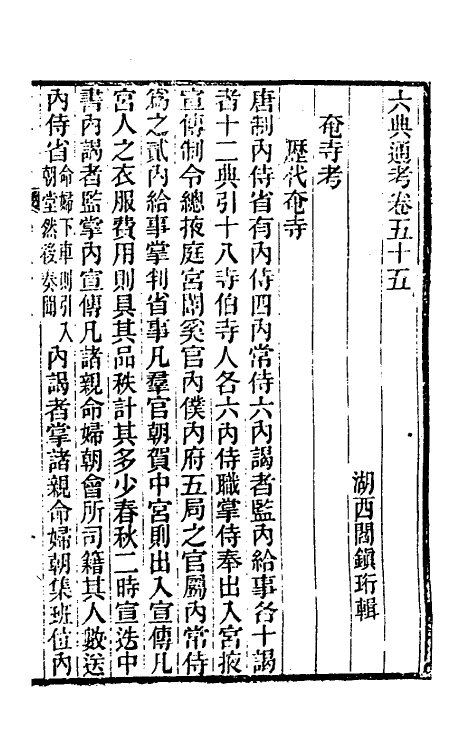 六典通考卷五十五
湖西閻鎮珩輯
奄寺考
歷代奄寺
唐制內侍省有內侍四內常侍六內謁者監內給事各十謁
者十二典引十八寺伯寺人各六內侍職掌侍奉出入宮掖
宣傳制令總掖庭宮闈奚官內僕內府五局之官屬內常侍
為之貳內給事掌判省事凡羣官朝賀中宮則出入宣傳凡
宮人之衣服費用則具其品秩計其多少春秋二時宣送中
書內謁者監掌內宣傳凡諸親命婦朝會所司籍其人數送
內侍省命婦下車則引入朝堂然後奏聞內謁者掌諸親命婦朝集班位內